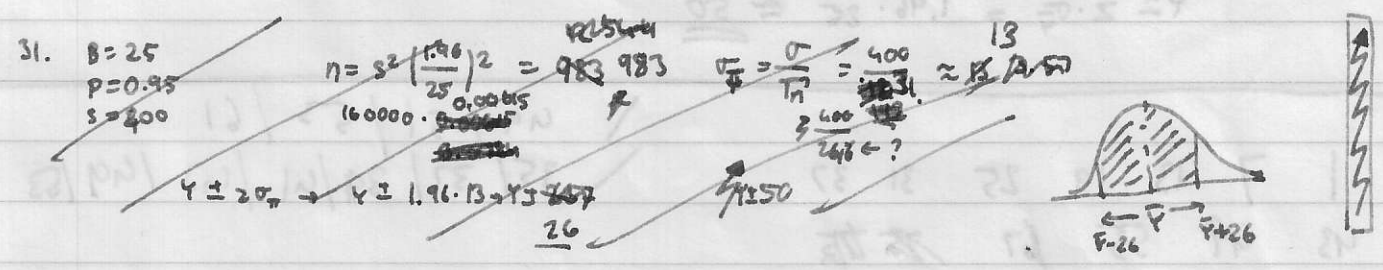 31. B=25
P=0.95
S=400
n = s² (1.96/25)² = 983 983
160000 · 0.00615
σȳ = σ/√n = 400/31. ≈ 13
400/24,6 ← ?
Y ± 2σn → Y ± 1.96·13 → Y ±
26
Y±50
Ȳ-26 ← Ȳ → Ȳ+26